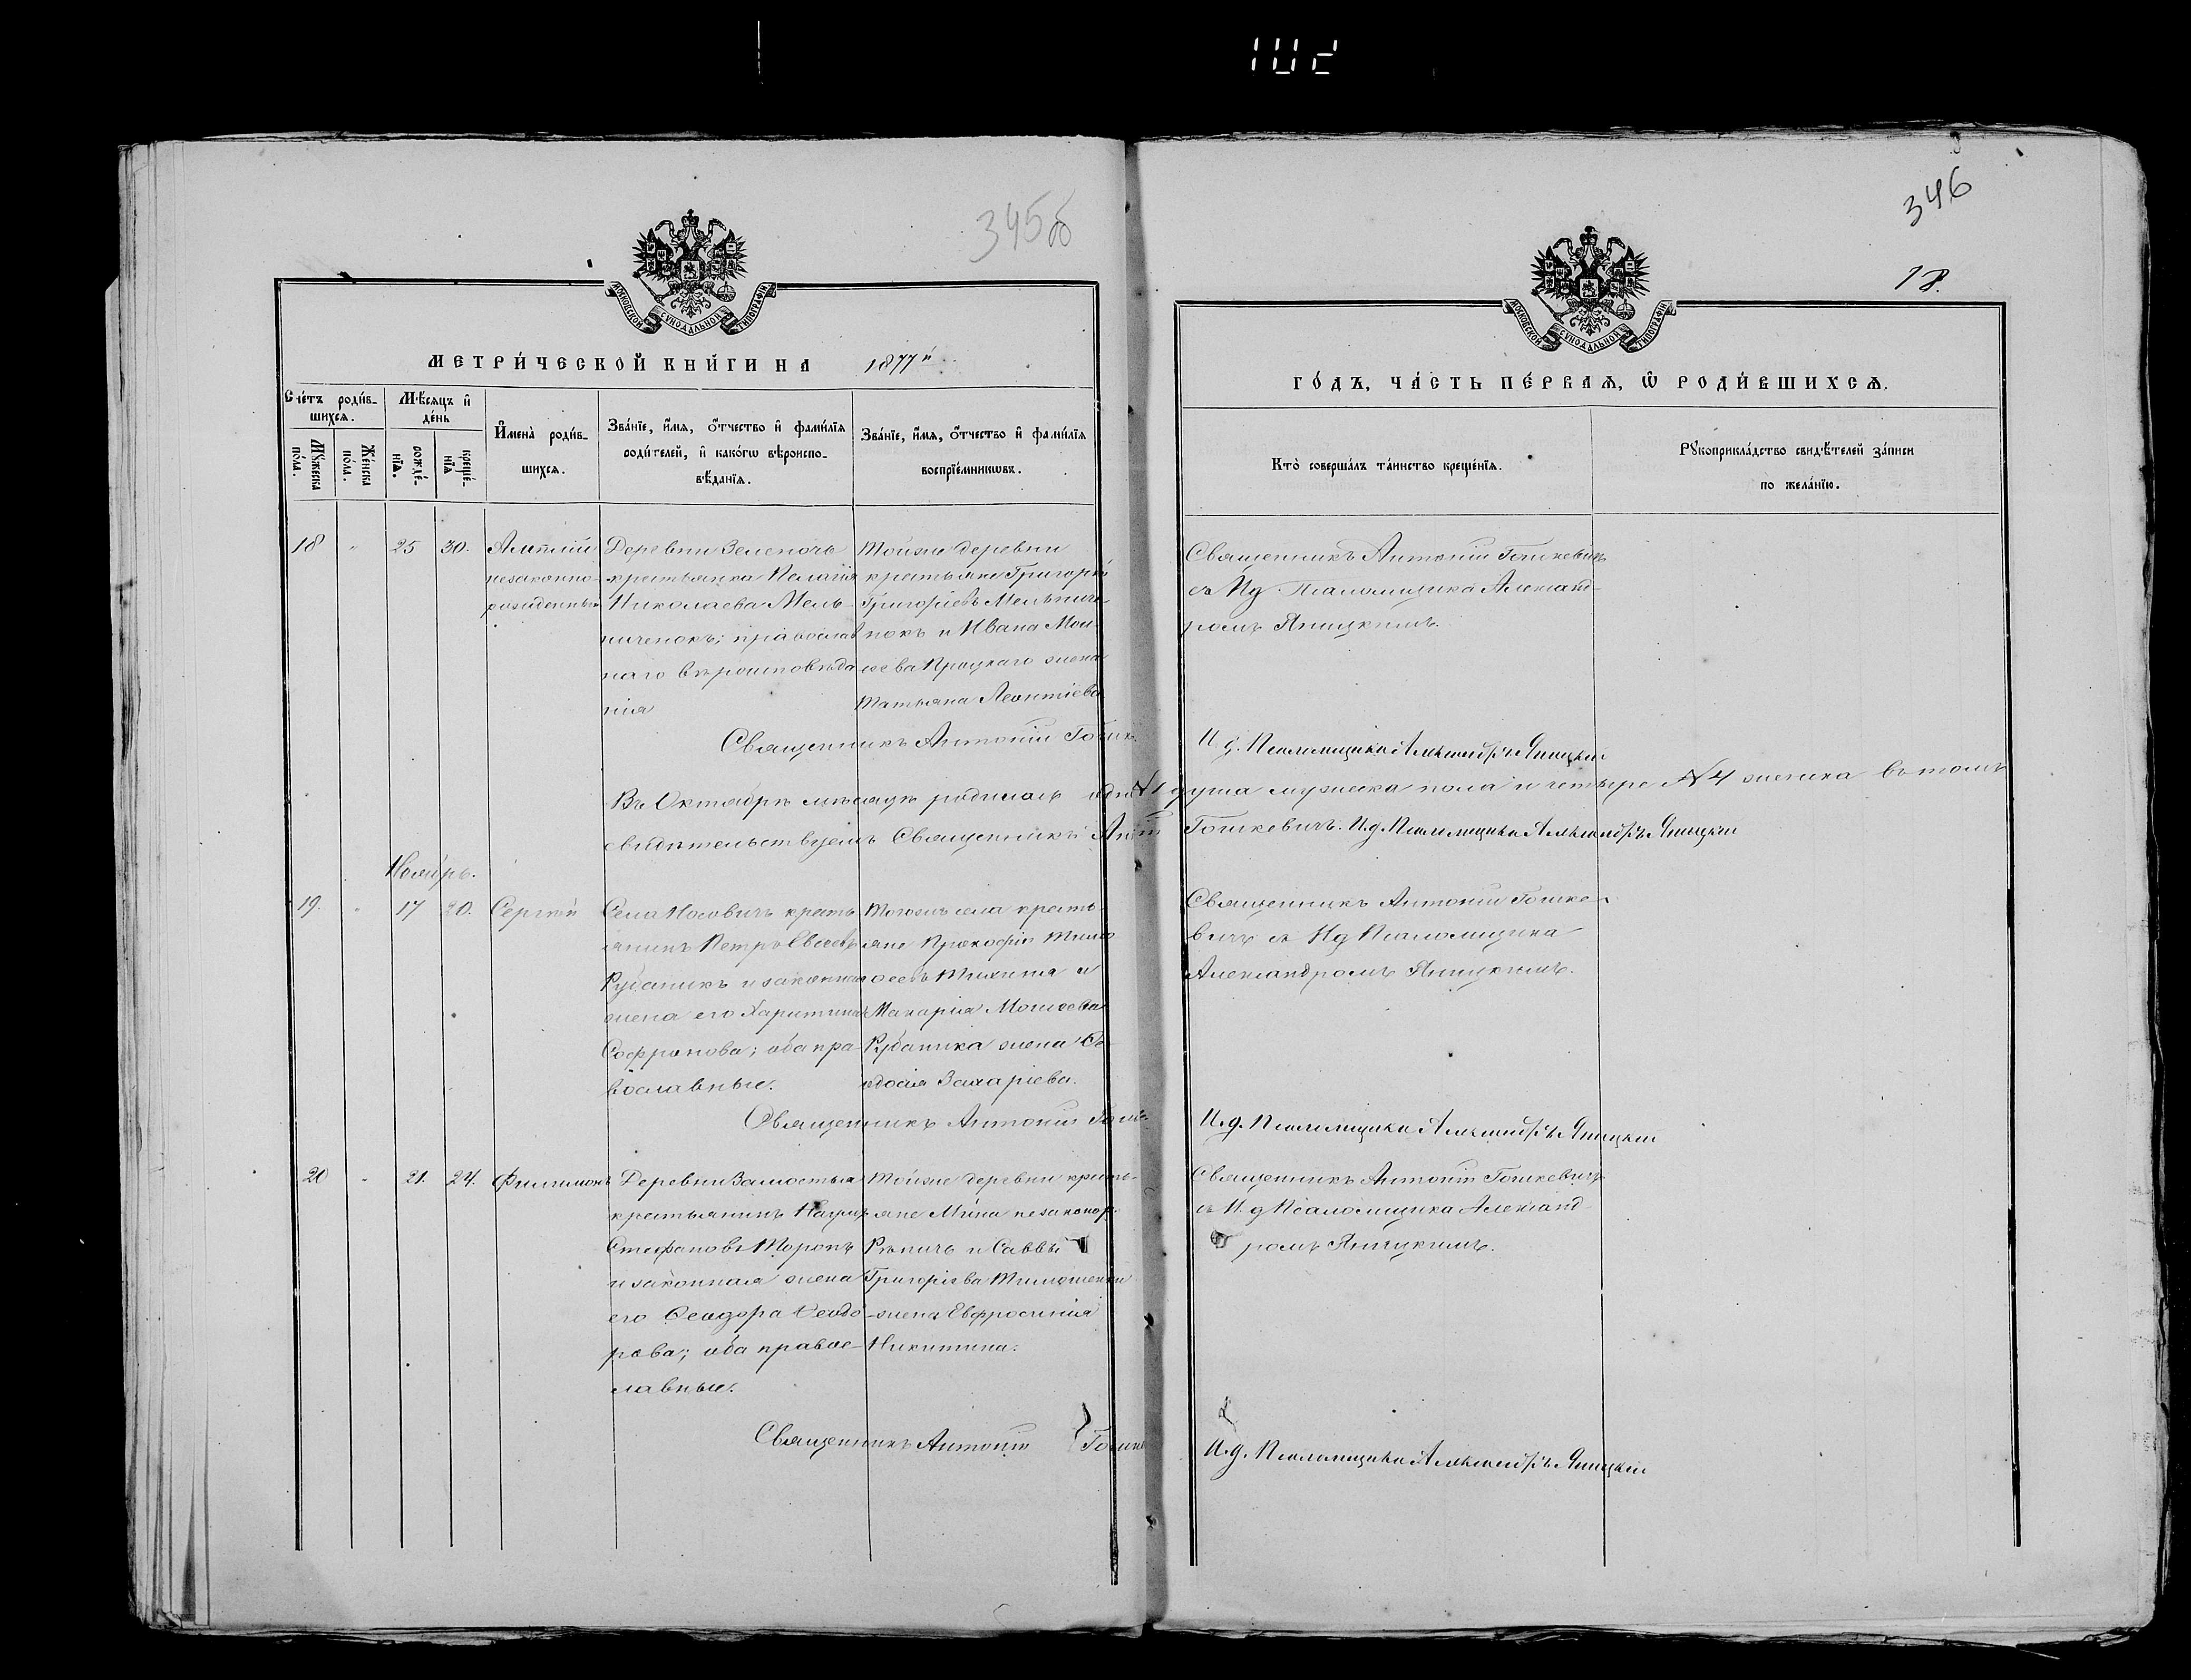 345об
346
18.
МОСКОВСКОЙ СѴНОДАЛЬНОЙ ТИПОГРАФІИ
МОСКОВСКОЙ СѴНОДАЛЬНОЙ ТИПОГРАФІИ
МЕТРИ́ЧЕСКОЙ КНИ́ГИ НА 1877й
ГО́ДЪ, ЧА́СТЬ ПЕ́РВАѦ, Ѡ РОДИ́ВШИХСѦ.
Сче́тъ роди́в-
шихсѧ.
Мꙋ́жеска по́ла.
Же́нска по́ла.
Мѣ́сѧцъ и҆
де́нь
рожде́-
нїѧ.
креще́-
нїѧ
И҆мена̀ роди́в-
шихсѧ.
Зва́нїе, и҆́мѧ, ѻ҆́тчество и҆ фамі́лїѧ
роди́телей, и҆ како́гѡ вѣроиспо-
вѣ́данїѧ.
Зва́нїе, и҆́мѧ, ѻ҆́тчество и҆ фамі́лїѧ
воспрїе́мникѡвъ.
Кто̀ соверша́лъ та́инство креще́нїѧ.
Рꙋкоприкла́дство свидѣ́телей за́писи
по жела́нїю.
18 " 25 30.
незаконно-
рожденный
Деревни Зеленочь
крестьянка Пелагія
Николаева Мель-
ниченокъ; православ
наго вѣроисповѣда
нія
Тойже деревни
крестьяне Григорій
Григоріевъ Мельниче-
нокъ и Ивана Мои-
сеева Процкаго жена
Татьяна Леонтіева
Священникъ Антоній Гошкевичъ
съ Ид Псаломщика Александ-
ромъ Яницкимъ.
Священникъ Антоній Гошк
И.д. Псаломщика Александръ Яницкій
Въ Октябрѣ мѣсяцѣ родилось одна №1 душа мужеска пола и четыре №4 женска въ томъ
свидѣтельствуемъ Священникъ Антоній Гошкевичъ. И.д. Псаломщика Александръ Яницкій
Ноябрь.
19. " 17 20. Сергій
Села Носовичъ кресть-
янинъ Петръ Евсеевъ
Рубаникъ и законная
жена его Харитина
Софронова; оба пра-
вославные.
Тогожъ села кресть-
яне Прокофій Тимо
ѳеевъ и
Макарія Моисеева
Рубаника жена Ѳе
одосія Захаріева.
Священникъ Антоній Гошке-
вичъ съ Ид Псаломщика
Александромъ Яницкимъ.
Священникъ Антоній Гошк
И.д. Псаломщика Александръ Яницкій
20 " 21. 24. Филимонъ
Деревни Замостья
крестьянинъ Наумъ
Стефановъ Моронъ
и законная жена
его Ѳеодора Ѳеодо
рова; оба правос-
лавные.
Тойже деревни кресть-
яне Мина незаконор.
Рѣпичъ и Саввы
Григоріева Тимошенки
жена Евфросинія
Никитина.
Священникъ Антоній Гошкевичъ
съ И.д Псаломщика Александ
ромъ Яницкимъ.
Священникъ Антоній Гошке
И.д. Псаломщика Александръ Яницкій